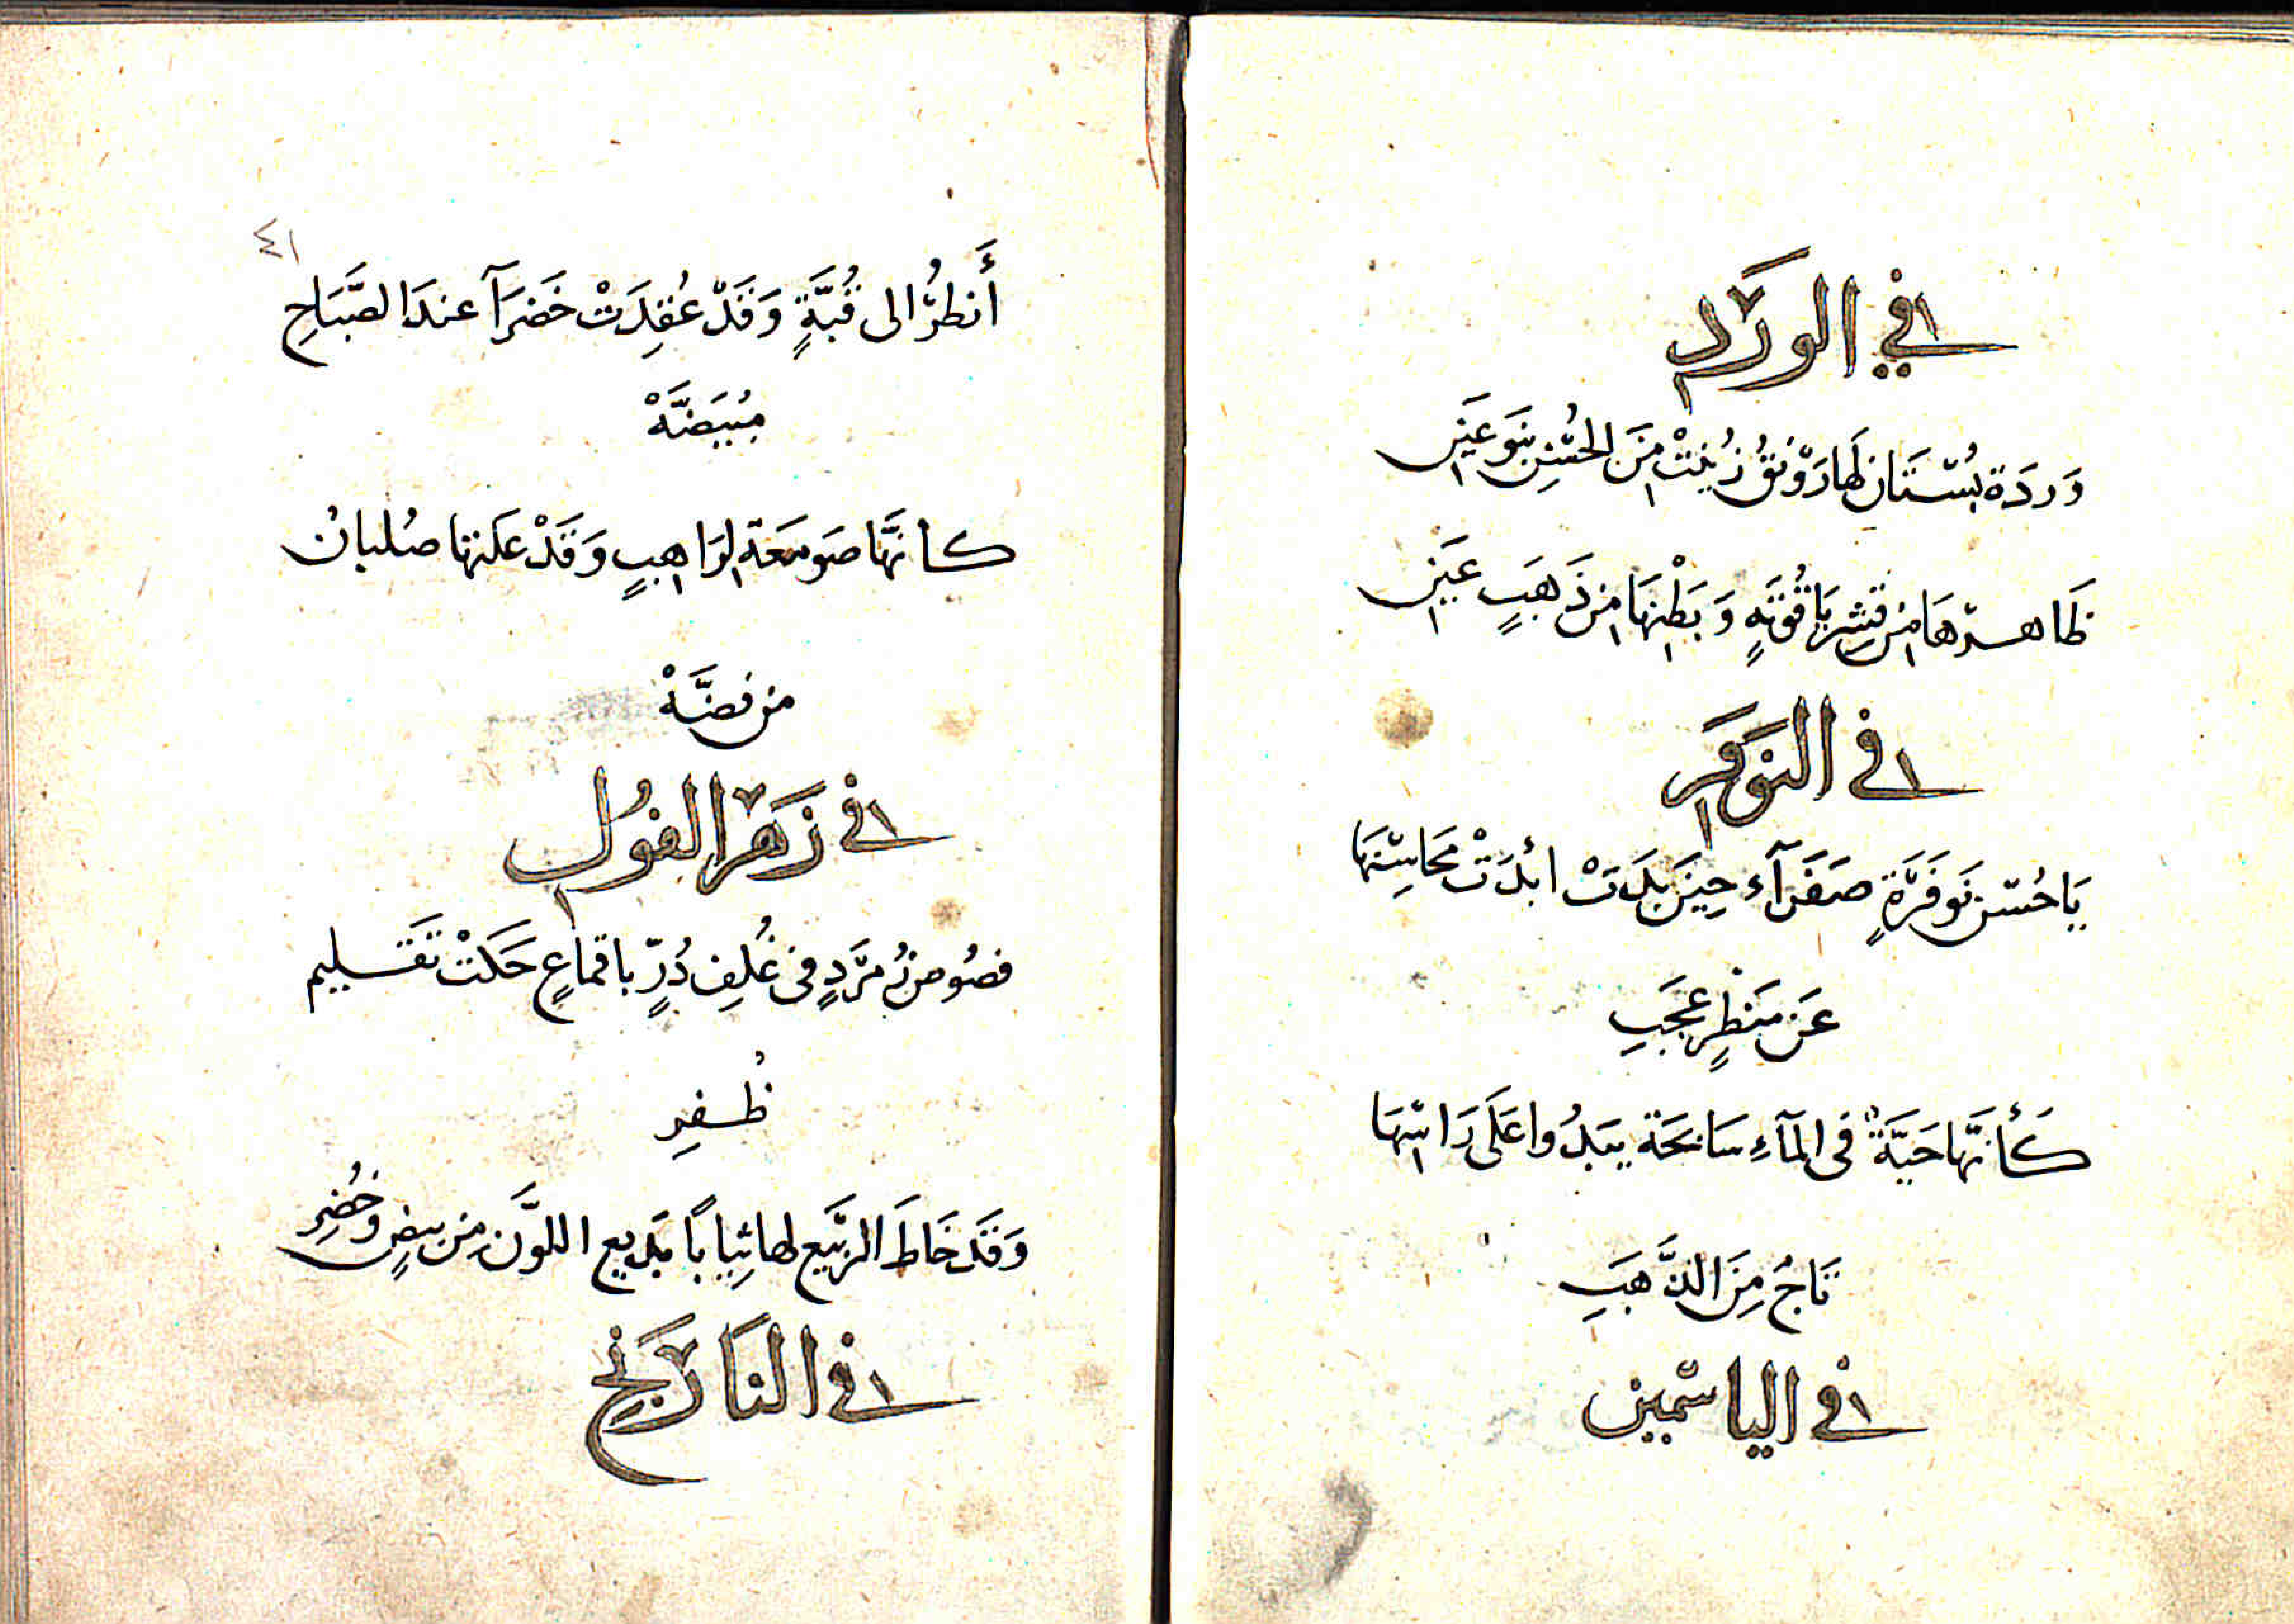 في الورد
وَردَة بُسْتَان لَهَا رَوْنَقُ زُيِنَتْ مِنَ الحُسْنِ بنَوعَيْنِ
ظَاهرْهَا مِن قِشرِ يَاقُوْتَهٍ وَبَطْنِهَا مِن ذَهَبٍ عَيْنِ
في النَوفَر
يَا حُسْن نَوفَرَةٍ صَفرَآء حِيْنَ بَدَتْ ابْدَتْ مَحَاسِنهَا
عَن مَنظَرٍ عَجَبِ
كَأَنَّهَا حَيَّةٌ فى المآءِ سَابحَة يَبدُوا عَلَى رَاسِهَا
تَاجٌ مِنَ الذَّهَبِ
في الياسْمين
٤١
أَنظُرْ الى قُبَّةٍ وَقَدْ عُقِدَتْ خَضرَآ عندَ الصَّبَاحِ
مُبيَضَّهْ
كأنهَّا صَومَعَة لرَاهِبٍ وَقَدْ عَلَتها صُلبانُ
من فضَّهْ
في زَهْر الفُول
فصُوص زُمرَّدٍ فى غُلفِ دُرٍّ باقماعٍ حَكَتْ تَقْليم
ظُفرِ
وَقَد خَاطَ الرَّبيَع لها ثِيَاباً بَديع اللوَّن مِن بيضٍ وَخُضْرِ
في النَارَنج